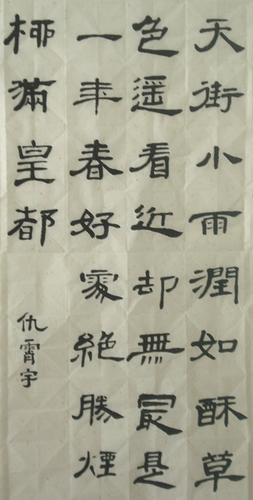 天街小雨潤如酥草
色遥看近却無最是
一年春好處絶勝煙
柳滿皇都
仇霄宇